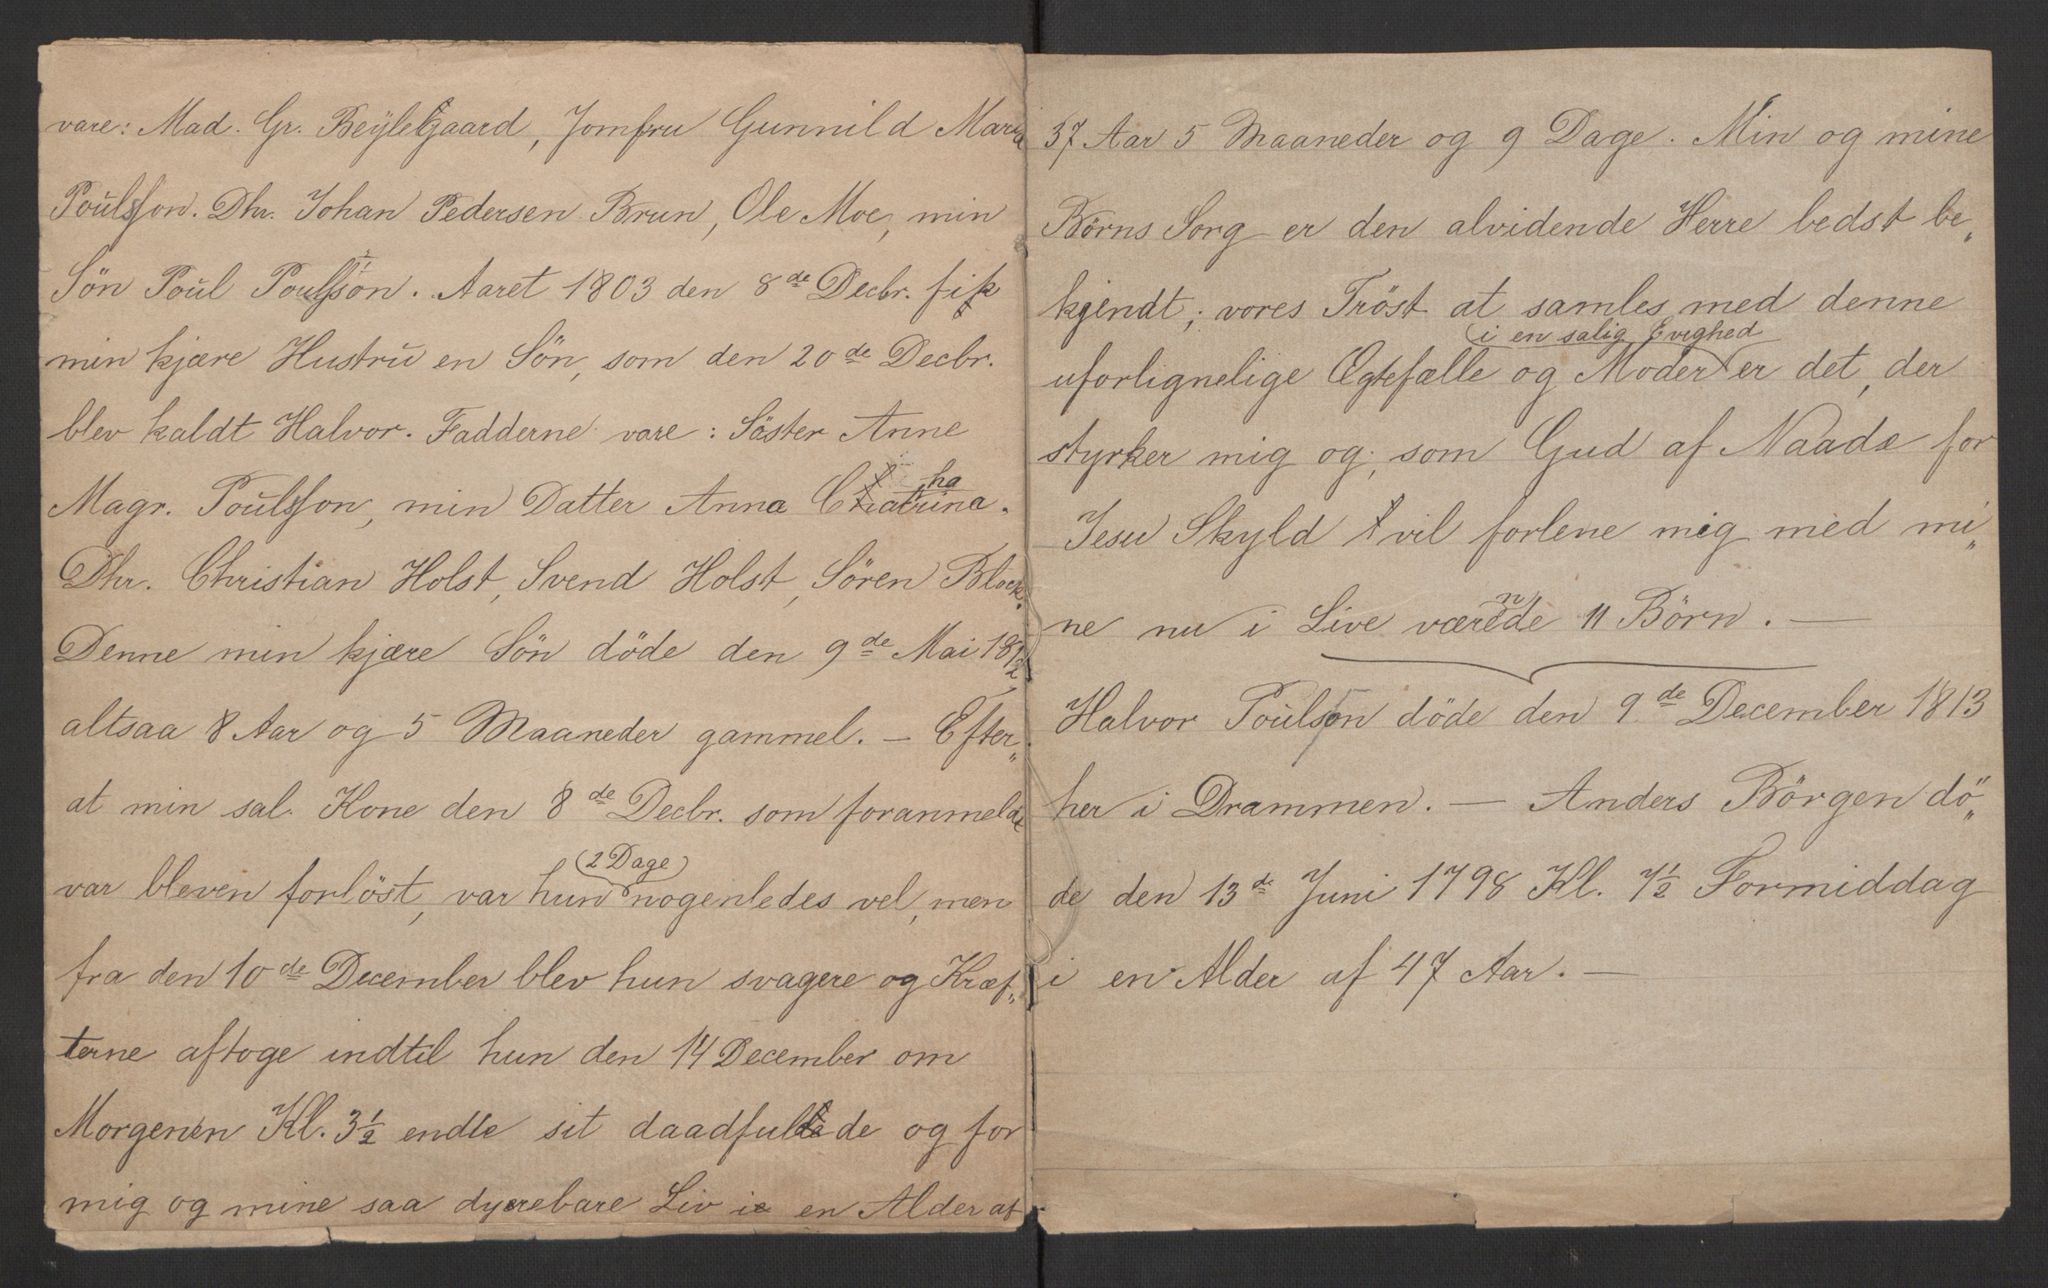 vare: Mad. Gr. Beylegaard, Jomfru Gunnild Maria
Poülsson. Dhr. Johan Pedersen Brun, Ole Moe, min
Sön Poül Poulsson. Aaret 1803 den 8de Decbr. fik
min kjære Hustrü en Sön, som den 20de Decbr.
blev kaldt Halvor. Fadderne vare: Söster Anne
Magr. Poülsson, min Datter Anna Chatrina.
Dhr. Christian Holst, Svend Holst, Sören Block.
Denne min kjære Sön döde den 9de Mai 1812,
altsaa 8 Aar og 5 Maaneder gammel. — Efter„
at min sal. Kone den 8de Decbr. som foranmeldt
var bleven forlöst, var hun (2 Dage) nogenledes vel, men
fra den 10de December blev hun svagere og Kræf„
terne aftoge indtil hun den 14 December om
Morgenen Kl. 3½ endte sit daadfulde og for
mig og mine saa dyrebare Liv i en Alder af
37 Aar 5 Maaneder og 9 Dage. Min og mine
Börns Sorg er den alvidende Herre bedst be„
kjendt; vores Tröst at samles med denne
(i en salig Evighed
uforlignelige Ægtefælle og Moder er det, der
styrker mig og, som Gud af Naade for
Jesu Skyld vil forlene mig med mi„
ne nu i Live værende 11 Börn. —
Halvor Poülsson döde den 9de December 1813
her i Drammen. — Anders Börgen dö„
de den 13de Juni 1798 Kl. 7½ Formiddag
i en Alder af 47 Aar. —